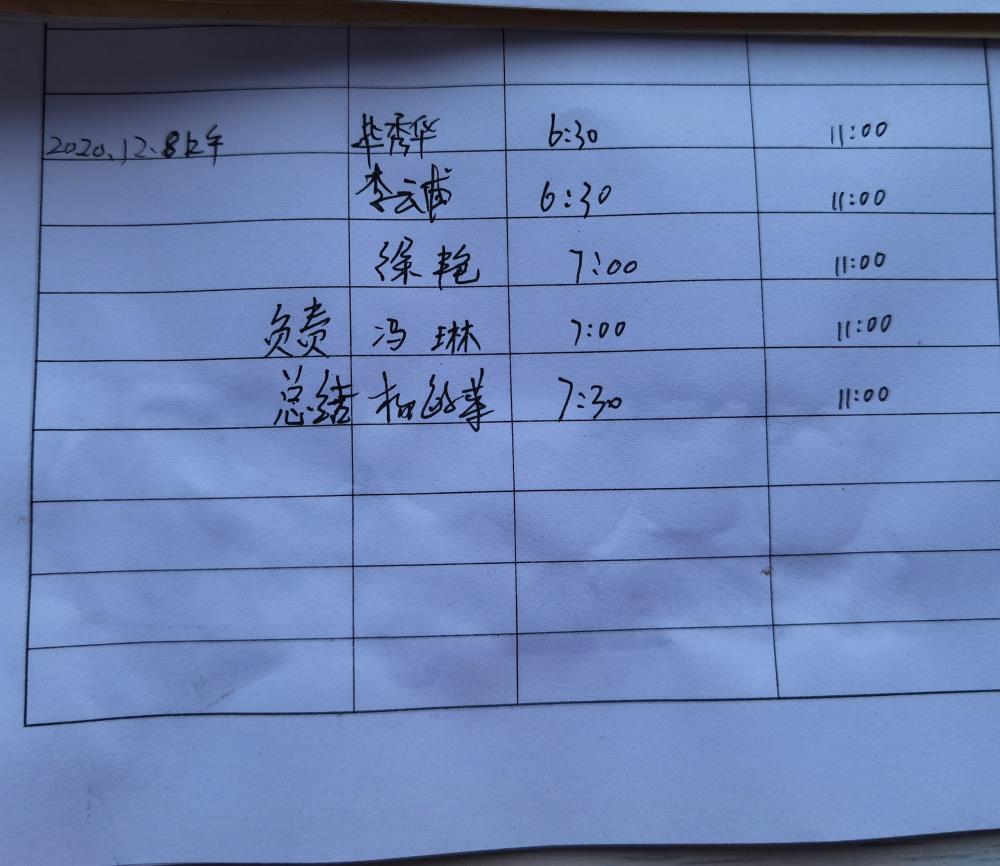 2020.12.8上午 毕秀华 6:30 11:00
李云甫 6:30 11:00
徐艳 7:00 11:00
负责 冯琳 7:00 11:00
总结 7:30 11:00